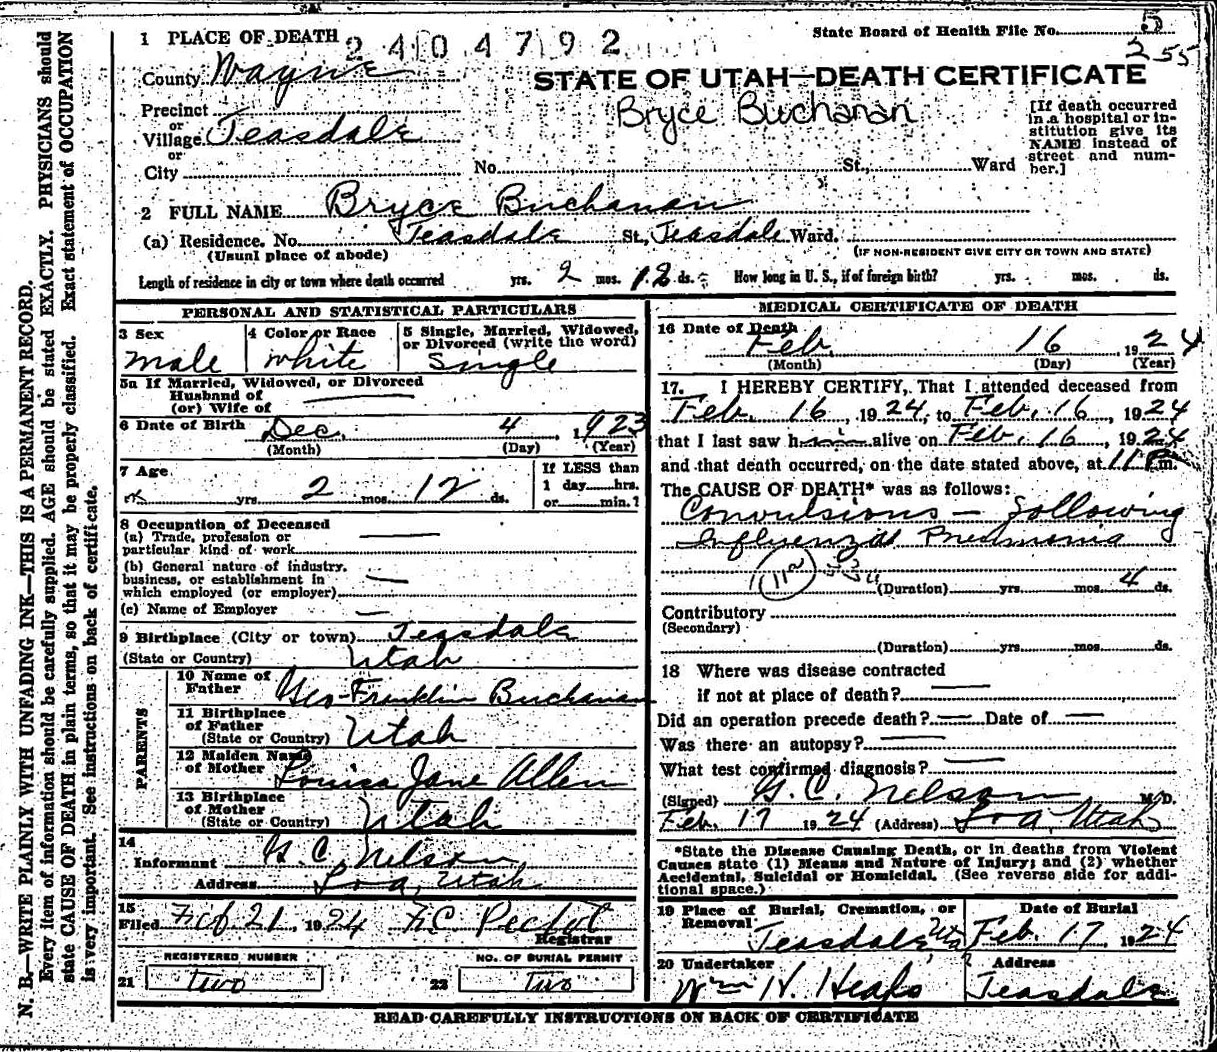 1 PLACE OF DEATH 2404792 State Board of Health File No. 5
255
County Wayne STATE OF UTAH—DEATH CERTIFICATE
Precinct Bryce Buchanan
or
Village Teasdale
or
City No. St., Ward
[If death occurred
in a hospital or in-
stitution give its
NAME instead of
street and num-
ber.]
2 FULL NAME Bryce Buchanan
(a) Residence. No. Teasdale St, Teasdale Ward.
(Usual place of abode) (IF NON-RESIDENT GIVE CITY OR TOWN AND STATE)
Length of residence in city or town where death occurred yrs. 2 mos. 12 ds. How long in U. S., if of foreign birth? yrs. mos. ds.
PERSONAL AND STATISTICAL PARTICULARS
3 Sex 4 Color or Race 5 Single, Married, Widowed,
or Divorced (write the word)
male white Single
5a If Married, Widowed, or Divorced
Husband of
(or) Wife of
6 Date of Birth Dec. 4, 1923
(Month) (Day) (Year)
7 Age If LESS than
1 day hrs.
yrs. 2 mos. 12 ds. or min.?
8 Occupation of Deceased
(a) Trade, profession or
particular kind of work
(b) General nature of industry,
business, or establishment in
which employed (or employer)
(c) Name of Employer
9 Birthplace (City or town) Teasdale
(State or Country) Utah
PARENTS
10 Name of
Father Geo Franklin Buchanan
11 Birthplace
of Father
(State or Country) Utah
12 Maiden Name
of Mother Louisa Jane Allen
13 Birthplace
of Mother
(State or Country) Utah
14
Informant G. C. Nelson
Address Loa, Utah
15
Filed Feb. 21, 1924 Pectol
Registrar
REGISTERED NUMBER NO. OF BURIAL PERMIT
21 Two 22 Two
MEDICAL CERTIFICATE OF DEATH
16 Date of Death
Feb. 16, 1924
(Month) (Day) (Year)
17. I HEREBY CERTIFY, That I attended deceased from
Feb. 16, 1924, to Feb. 16, 1924
that I last saw him alive on Feb. 16, 1924
and that death occurred, on the date stated above, at 11 Pm.
The CAUSE OF DEATH* was as follows:
Convulsions — following
Influenzal Pneumonia
(Duration) yrs. mos. 4 ds.
Contributory
(Secondary)
(Duration) yrs. mos. ds.
18 Where was disease contracted
if not at place of death?
Did an operation precede death? Date of
Was there an autopsy?
What test confirmed diagnosis?
(Signed) G. C. Nelson M.D.
Feb. 17 1924 (Address) Loa, Utah
*State the Disease Causing Death, or in deaths from Violent
Causes state (1) Means and Nature of Injury; and (2) whether
Accidental, Suicidal or Homicidal. (See reverse side for addi-
tional space.)
19 Place of Burial, Cremation, or Date of Burial
Removal
Teasdale Uta Feb. 17, 1924
20 Undertaker Address
Wm H. Heaps Teasdale
READ CAREFULLY INSTRUCTIONS ON BACK OF CERTIFICATE
N. B.—WRITE PLAINLY WITH UNFADING INK—THIS IS A PERMANENT RECORD.
Every item of information should be carefully supplied. AGE should be stated EXACTLY. PHYSICIANS should
state CAUSE OF DEATH in plain terms, so that it may be properly classified. Exact statement of OCCUPATION
is very important. See instructions on back of certificate.